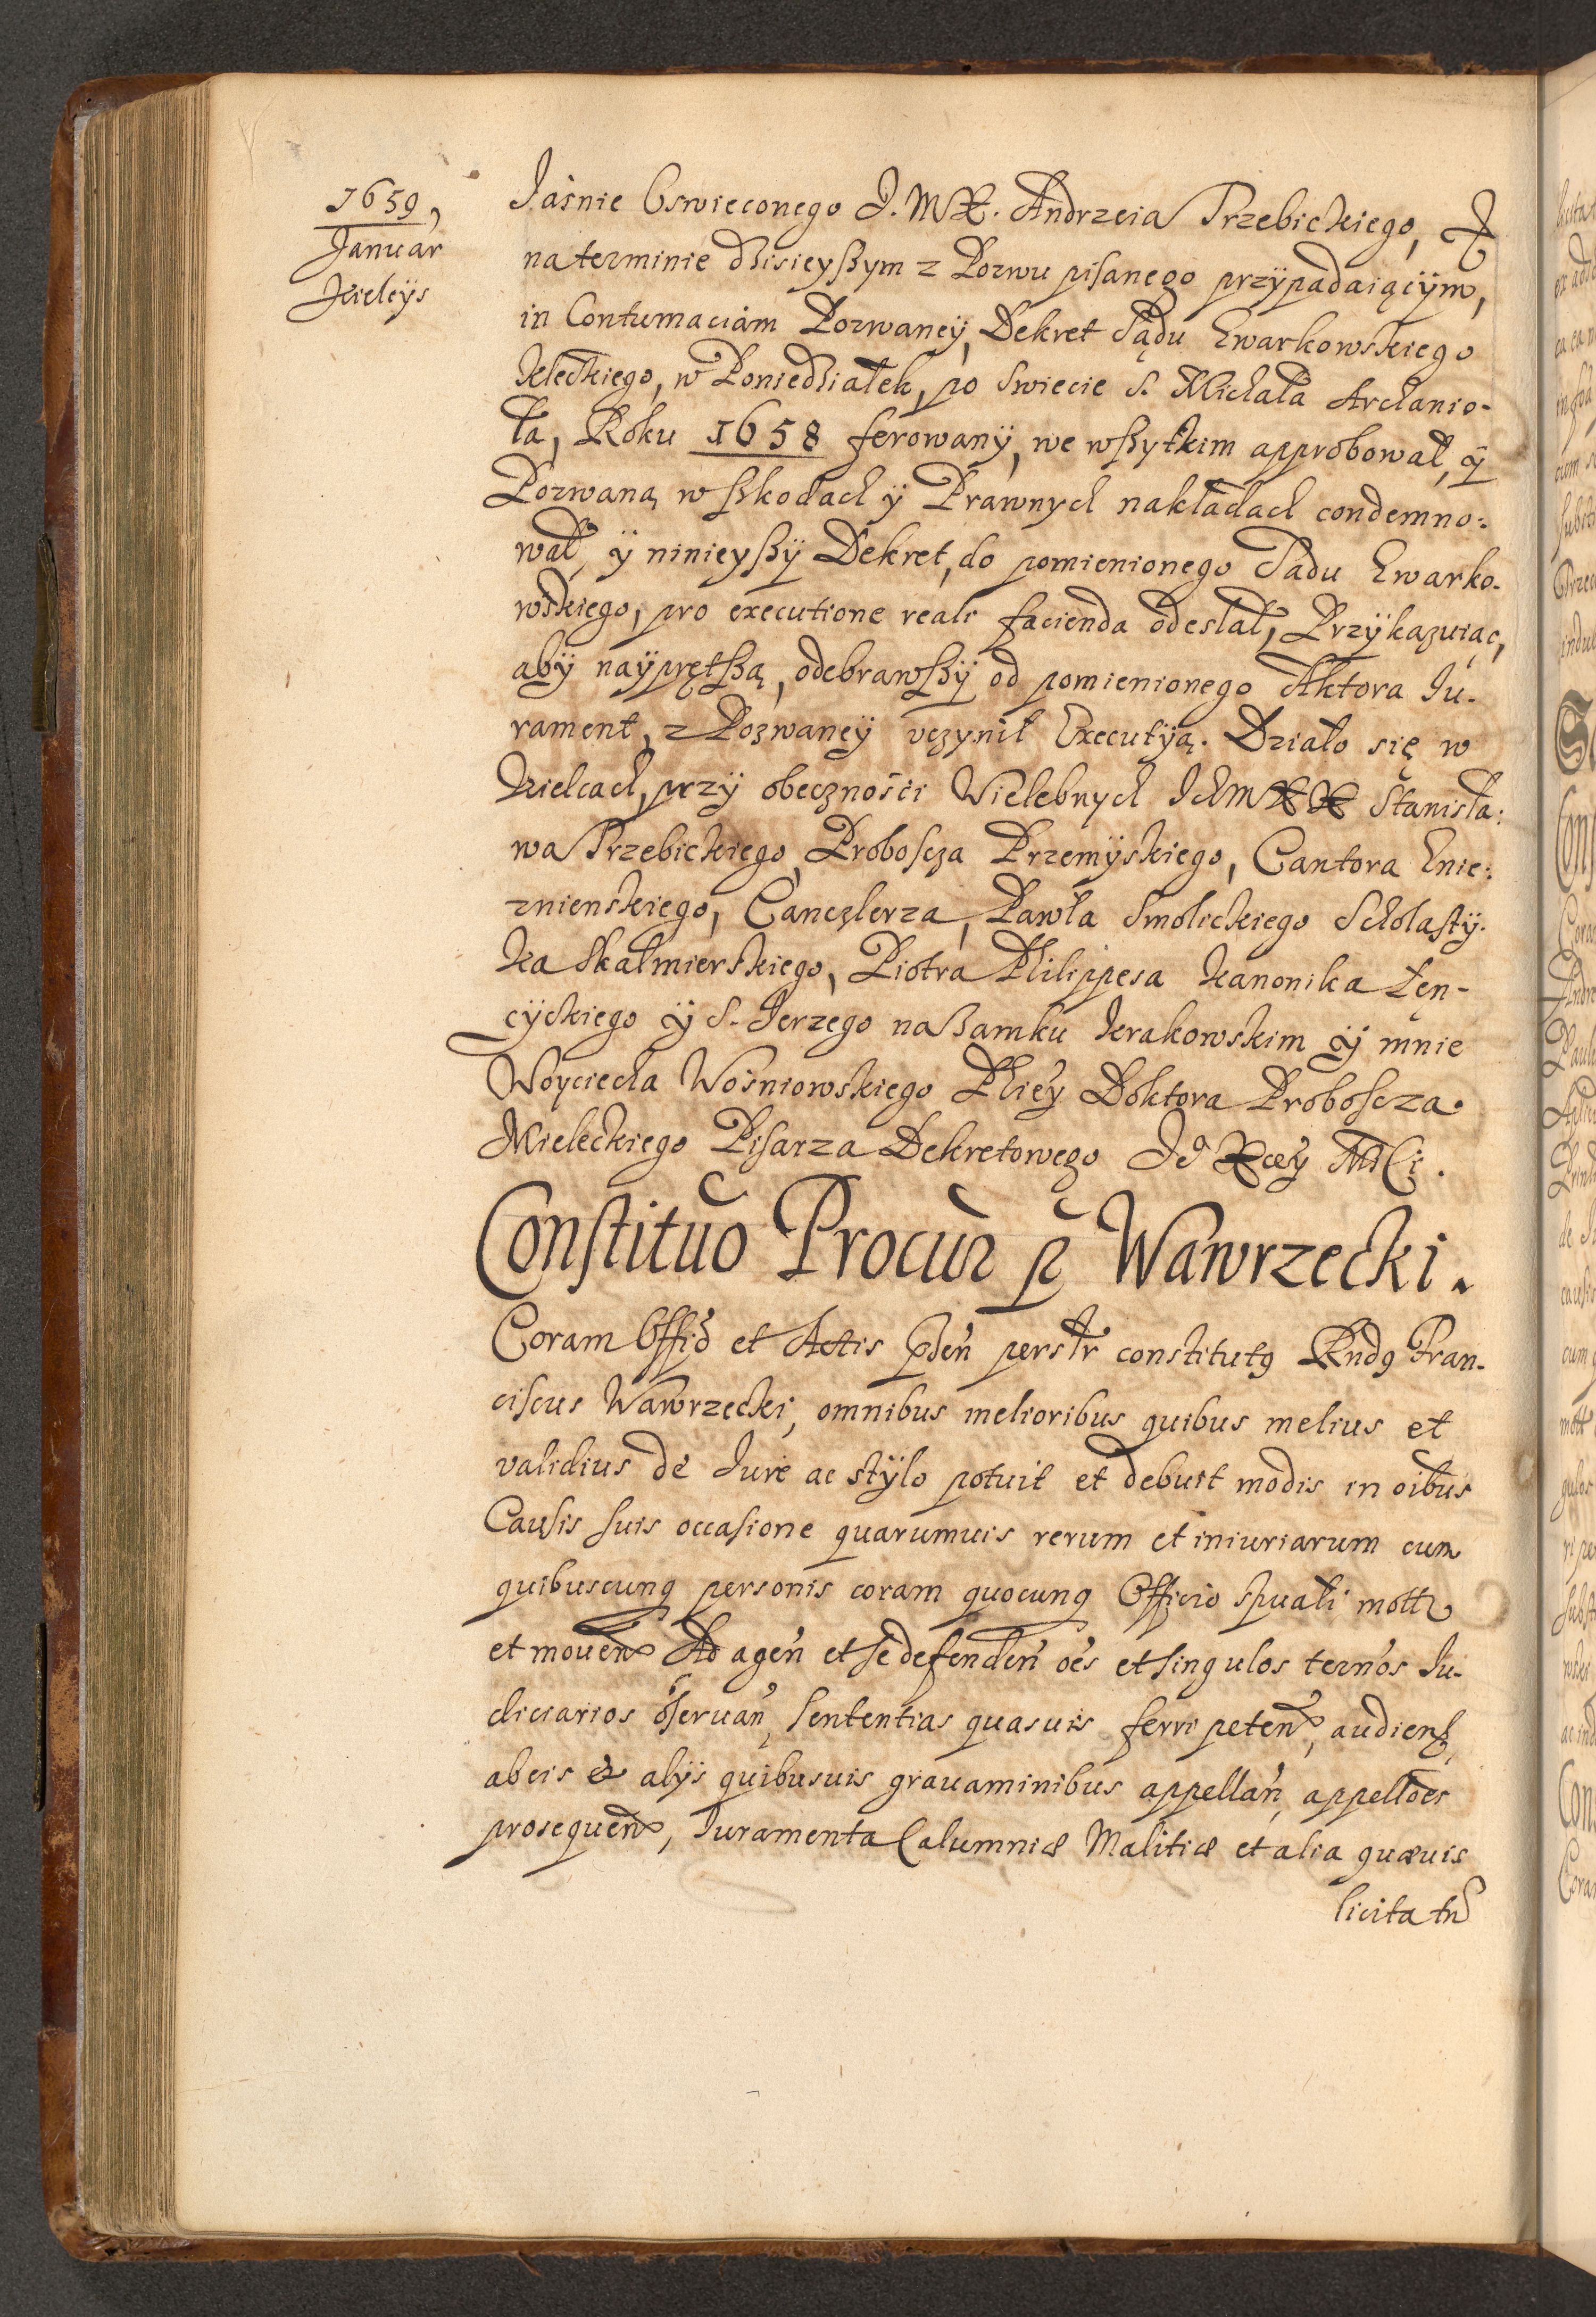 1659,
Januar
Kielÿs
Jaśnie Oswieconego J. M X. Andrzeia Trzebickiego, X
na terminie dzisieyszym z Pozwu pisanego przÿpadaiącÿm,
in Contumaciam Pozwaneÿ, Dekret Sądu Gwarkowskiego
Kieleckiego, w Poniedziałek, po Swiecie S. Michała Archanio-
ła, Roku 1658 ferowanÿ, we wszytkim approbował, ÿ
Pozwaną w szkodach ÿ Prawnych nakładach condemno:
wał, ÿ ninieyszÿ Dekret, do pomienionego Sadu Gwarko-
wskiego, pro executione reali facienda odesłał, Przÿkazuiąc,
abÿ naÿprętszą, odebrawszÿ od pomienionego Aktora Ju-
rament, z Pozwaneÿ uczynił Executÿą. Działo się w
Kielcach, przÿ obecznośći Wielebnych Ich M X X Stanisła:
wa Trzebickiego, Proboscza Przemÿskiego, Cantora Gnie:
znienskiego, Canczlerza, Pawła Smolickiego Scholastÿ-
ka Skalmierskiego, Piotra Philippesa Kanonika Łęn-
cÿckiego ÿ S. Jerzego na Zamku Krakowskim ÿ mnie
Woyciecha Wośniowskiego Phiey Doktora Proboscza
Mieleckiego Pisarza Dekretowego Jo Xcey Mści.
Constituo Procur p Wawrzecki.
Coram Offio et Actis pnten persłr constitutq Rndq Fran-
ciscus Wawrzecki, omnibus melioribus quibus melius et
validius de Jure ac stÿlo potuit et debuit modis in oibus
Causis suis occasione quarumuis rerum et iniuriarum cum
quibuscunq personis coram quocunq Officio spuali mott
et mouen Ad agen et se defenden oes et singulos ternos Ju-
diciarios observan, sententias quasuis ferri peten, audien,
ab eis & alÿs quibusuis grauaminibus appellan, appelloes
prosequen, Juramenta Calumniæ Malitiæ et alia quæuis
licita tn